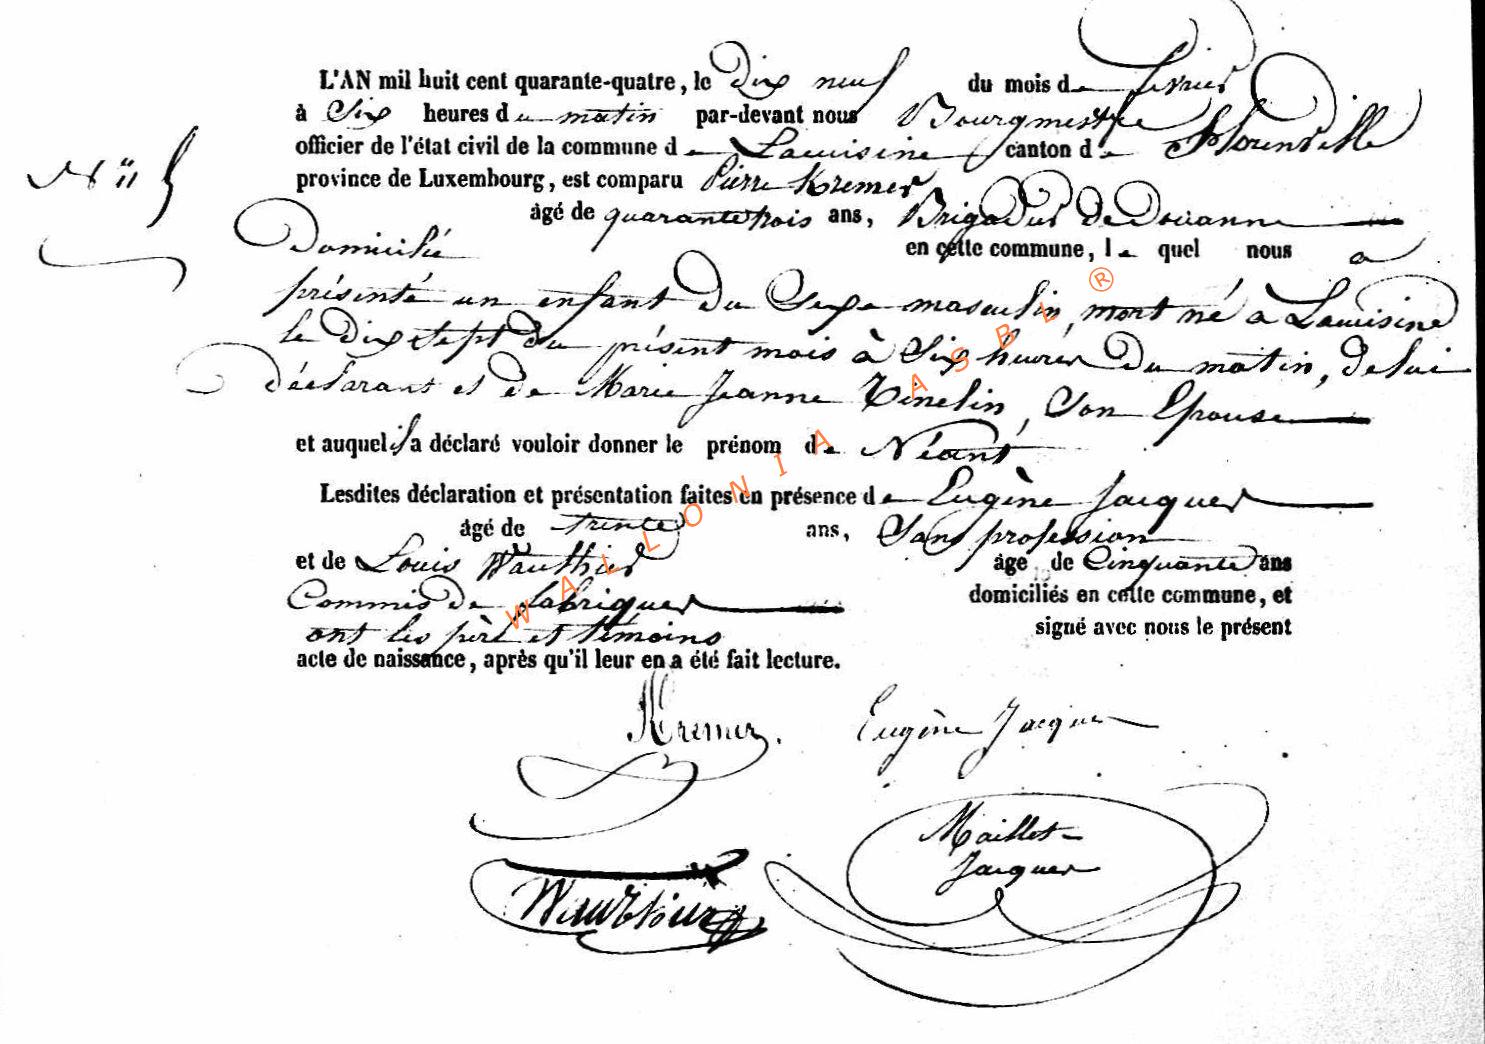 L'AN mil huit cent quarante-quatre, le dix neuf du mois de février
à Six heures du matin par-devant nous Bourgmestre
officier de l'état civil de la commune de Lacuisine canton de Florenville
province de Luxembourg, est comparu Pierre Kremer
âgé de quarante trois ans, Brigadier de Douanne
Domicilié en cette commune, le quel nous a
présenté un enfant du Sexe masculin, mort né à Lacuisine
le dix sept du présent mois à Six heures du matin, de lui
déclarant et de Marie Jeanne Tinelin, Son Epouse
et auquel il a déclaré vouloir donner le prénom de Néant
Lesdites déclaration et présentation faites en présence de Eugène Jacques
âgé de trente ans, Sans profession
et de Louis Wauthier âgé de Cinquante ans
Commis de fabriques domiciliés en cette commune, et
ont les père et témoins signé avec nous le présent
acte de naissance, après qu'il leur en a été fait lecture.
N° 5
Kremer. Eugène Jacques
Maillet-
Jacques
Wauthier
WALLONIA ASBL ®